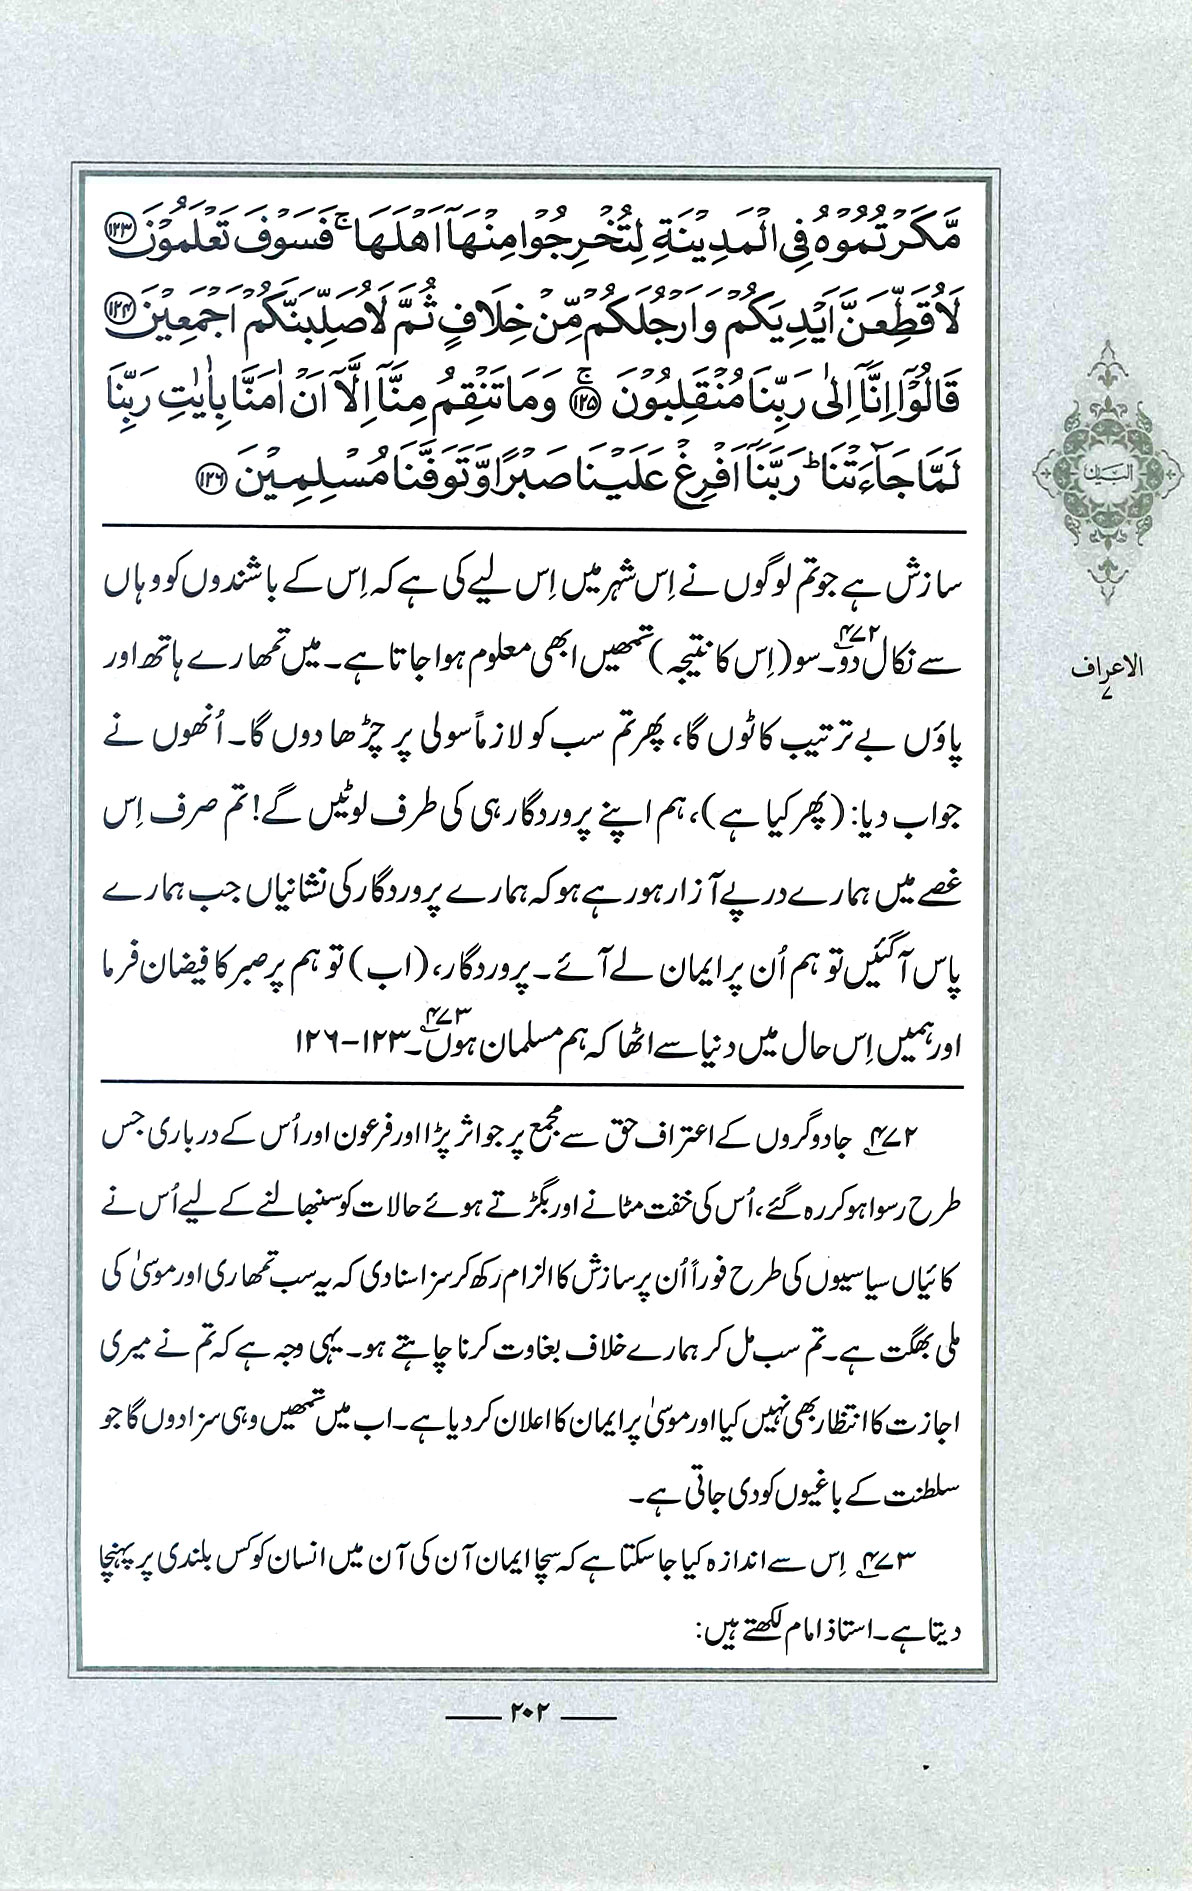 مَّكَرْتُمُوْهُ فِي الْمَدِيْنَةِ لِتُخْرِجُوْا مِنْهَآ اَهْلَهَا ۚ فَسَوْفَ تَعْلَمُوْنَ ﴿۱۲۳﴾
لَاُقَطِّعَنَّ اَيْدِيَكُمْ وَاَرْجُلَكُمْ مِّنْ خِلَافٍ ثُمَّ لَاُصَلِّبَنَّكُمْ اَجْمَعِيْنَ ﴿۱۲۴﴾
قَالُوْٓا اِنَّآ اِلٰى رَبِّنَا مُنْقَلِبُوْنَ ۚ ﴿۱۲۵﴾ وَمَا تَنْقِمُ مِنَّآ اِلَّآ اَنْ اٰمَنَّا بِاٰيٰتِ رَبِّنَا
لَمَّا جَآءَتْنَا ؕ رَبَّنَآ اَفْرِغْ عَلَيْنَا صَبْرًا وَّتَوَفَّنَا مُسْلِمِيْنَ ﴿۱۲۶﴾
سازش ہے جو تم لوگوں نے اِس شہر میں اِس لیے کی ہے کہ اِس کے باشندوں کو وہاں
سے نکال دو۔۴۷۲ سو (اِس کا نتیجہ) تمھیں ابھی معلوم ہوا جاتا ہے۔ میں تمھارے ہاتھ اور
پاؤں بے ترتیب کاٹوں گا، پھر تم سب کو لازماً سولی پر چڑھا دوں گا۔ اُنھوں نے
جواب دیا: (پھر کیا ہے)، ہم اپنے پروردگار ہی کی طرف لوٹیں گے! تم صرف اِس
غصے میں ہمارے درپے آزار ہو رہے ہو کہ ہمارے پروردگار کی نشانیاں جب ہمارے
پاس آگئیں تو ہم اُن پر ایمان لے آئے۔ پروردگار، (اب) تو ہم پر صبر کا فیضان فرما
اور ہمیں اِس حال میں دنیا سے اٹھا کہ ہم مسلمان ہوں۔۴۷۳ ۱۲۳-۱۲۶
۴۷۲ جادوگروں کے اعتراف حق سے مجمع پر جو اثر پڑا اور فرعون اور اُس کے درباری جس
طرح رسوا ہو کر رہ گئے، اُس کی خفت مٹانے اور بگڑتے ہوئے حالات کو سنبھالنے کے لیے اُس نے
کائیاں سیاسیوں کی طرح فوراً اُن پر سازش کا الزام رکھ کر سزا سنا دی کہ یہ سب تمھاری اور موسیٰ کی
ملی بھگت ہے۔ تم سب مل کر ہمارے خلاف بغاوت کرنا چاہتے ہو۔ یہی وجہ ہے کہ تم نے میری
اجازت کا انتظار بھی نہیں کیا اور موسیٰ پر ایمان کا اعلان کر دیا ہے۔ اب میں تمھیں وہی سزا دوں گا جو
سلطنت کے باغیوں کو دی جاتی ہے۔
۴۷۳ اِس سے اندازہ کیا جا سکتا ہے کہ سچا ایمان آن کی آن میں انسان کو کس بلندی پر پہنچا
دیتا ہے۔ استاذ امام لکھتے ہیں:
۲۰۲
البیان
الاعراف
۷